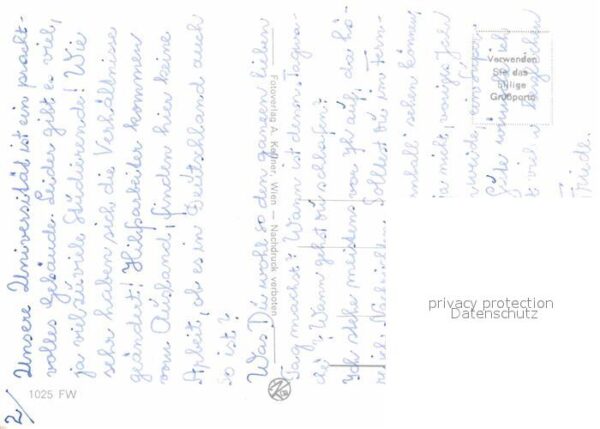 2/
Unsere Universität ist ein pracht-
volles Gebäude. Leider gibt es viel,
ja viel zu viele Studierende! Wie
sehr haben sich die Verhältnisse
geändert! Hilfsarbeiter kommen
vom Ausland, finden hier keine
Arbeit, ob es in Deutschland auch
so ist?
Was Du wohl so den ganzen lieben
Tag machst? Wann ist denn Tagwa-
che? Wann gehst Du schlafen?
Ich stehe meistens vor 7h auf, da hö-
re ich Nachrichten. Solltest Du im Fern-
sehen können,
ja nicht, voriges Jahr
wurde
wünsche ich
viel
Friedl.
Fotoverlag A. Kellner, Wien — Nachdruck verboten
1025 FW
Verwenden
Sie das
billige
Grußporto
privacy protection
Datenschutz